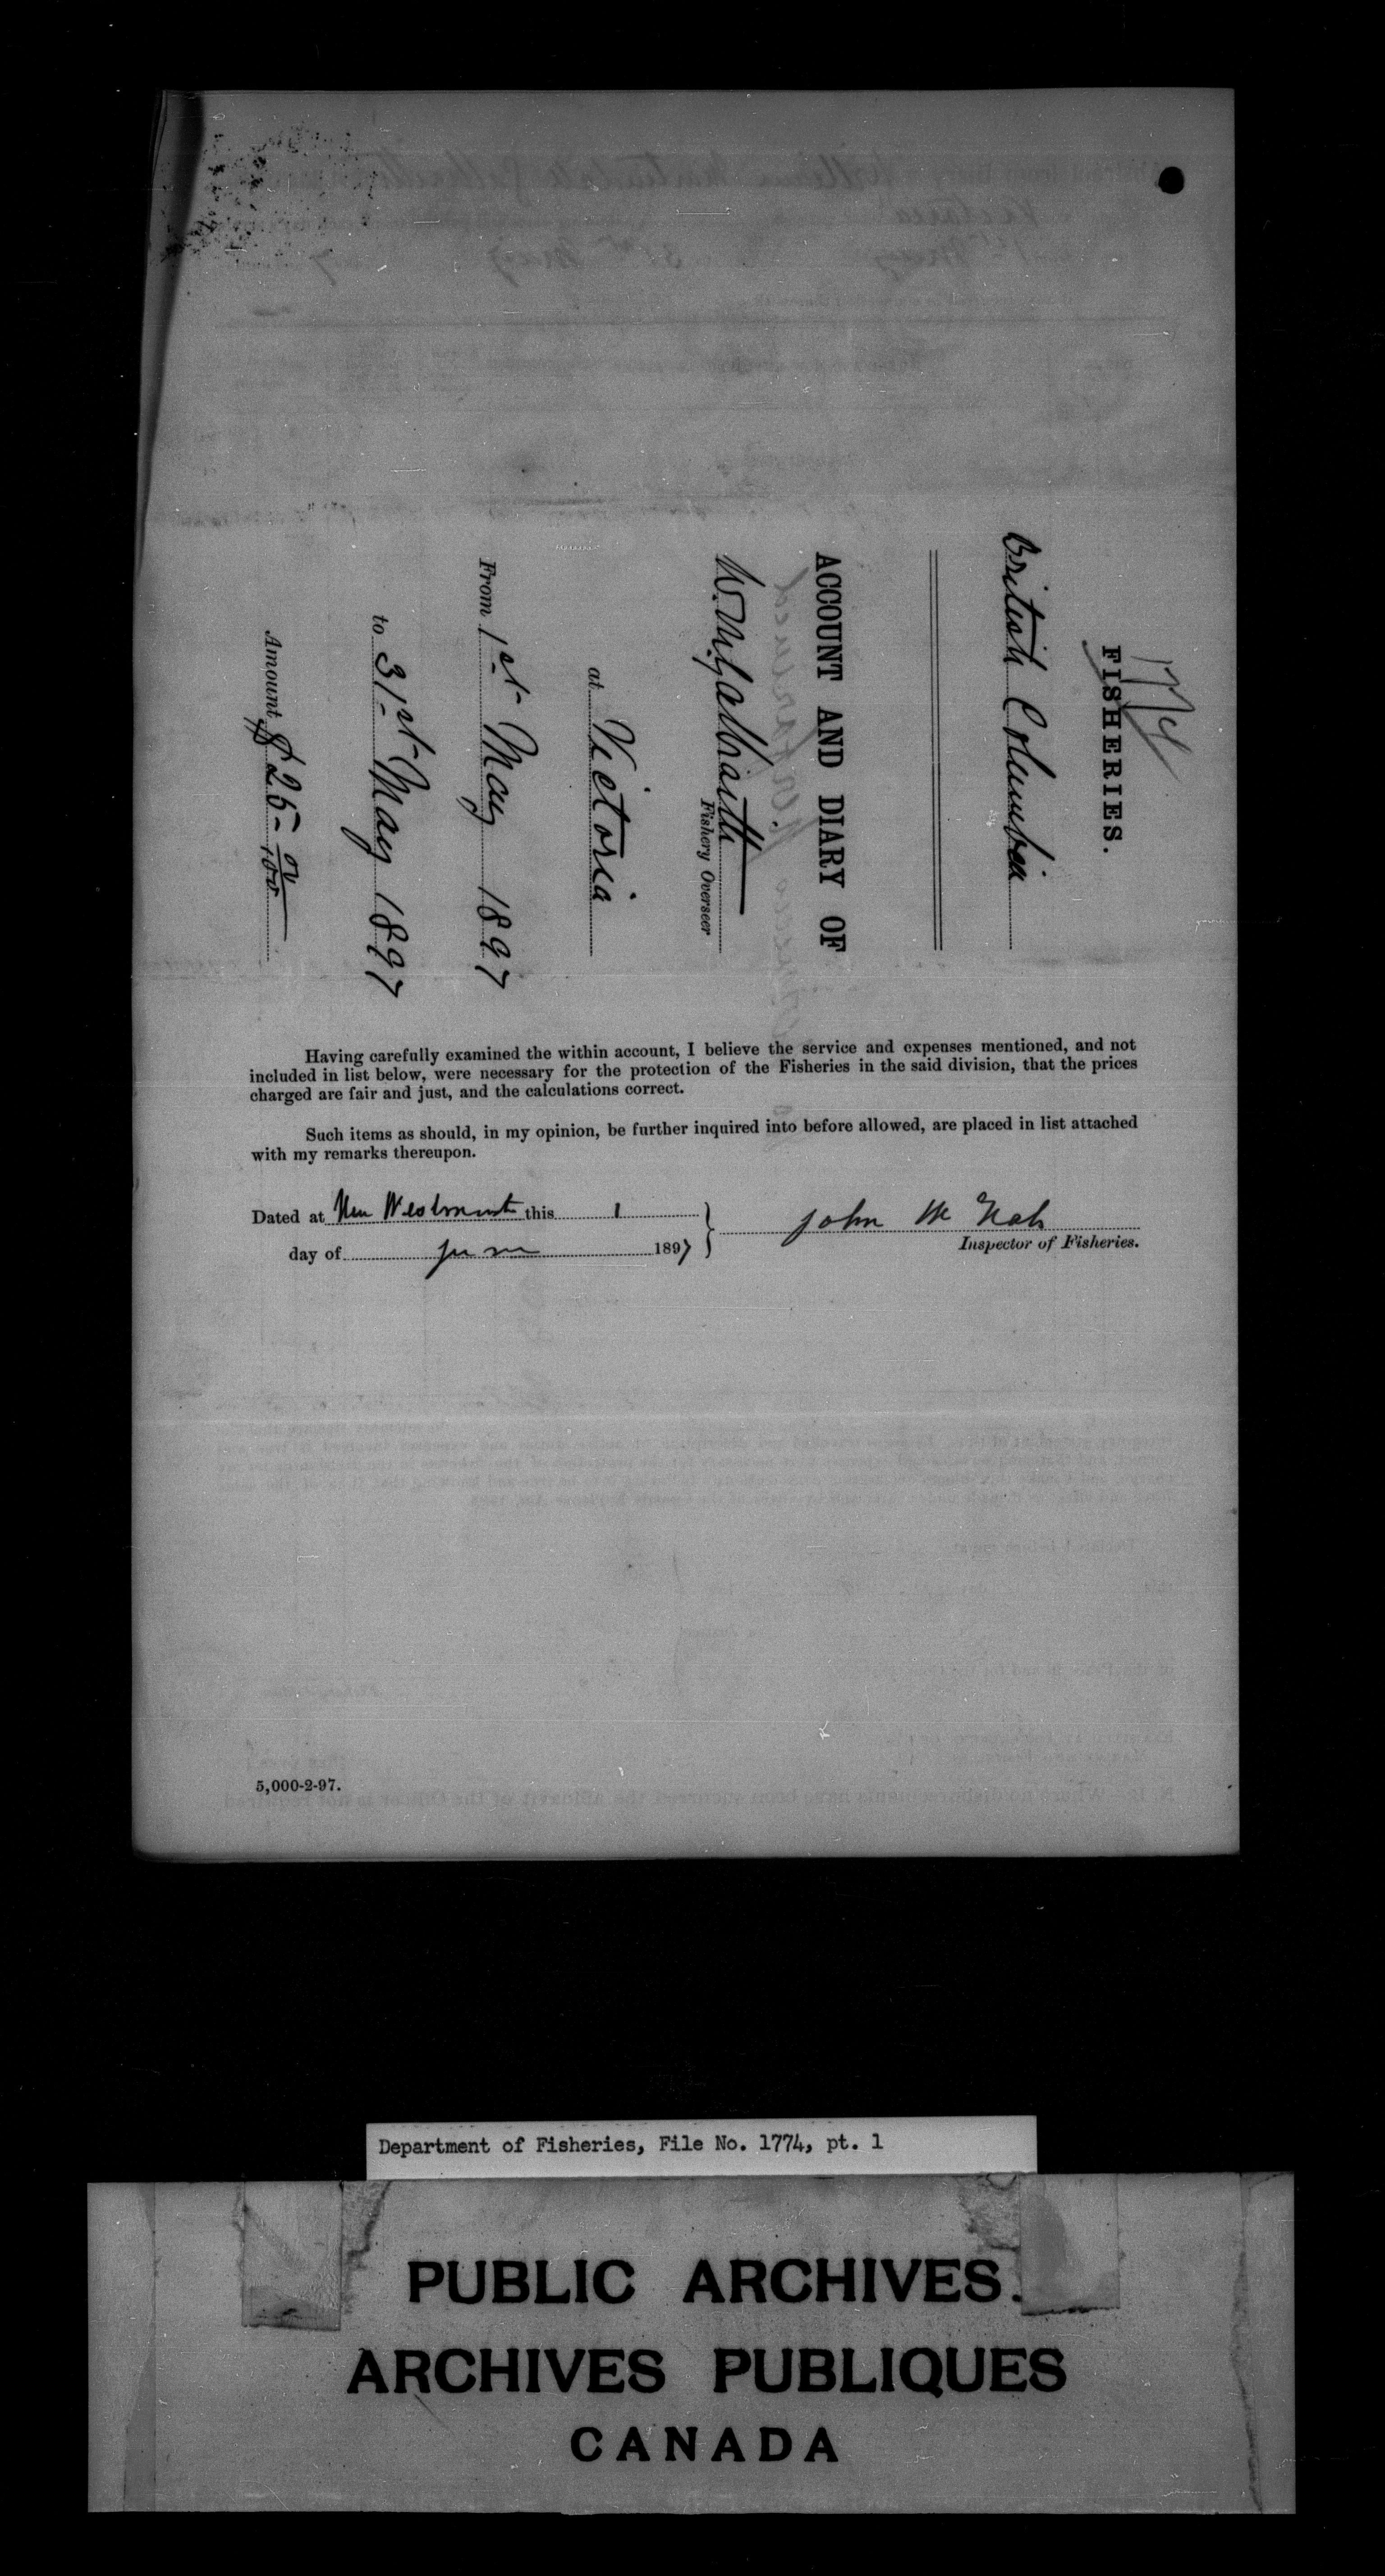 1774
FISHERIES.
British Columbia
ACCOUNT AND DIARY OF
W. M. Galbraith
Fishery Overseer
at Victoria
From 1st May 1897
to 31st May 1897
Amount $25 - 00/100
Having carefully examined the within account, I believe the service and expenses mentioned, and not
included in list below, were necessary for the protection of the Fisheries in the said division, that the prices
charged are fair and just, and the calculations correct.
Such items as should, in my opinion, be further inquired into before allowed, are placed in list attached
with my remarks thereupon.
Dated at New Westminster this 1
day of June 1897
John McNab
Inspector of Fisheries.
5,000-2-97.
Department of Fisheries, File No. 1774, pt. 1
PUBLIC ARCHIVES.
ARCHIVES PUBLIQUES
CANADA